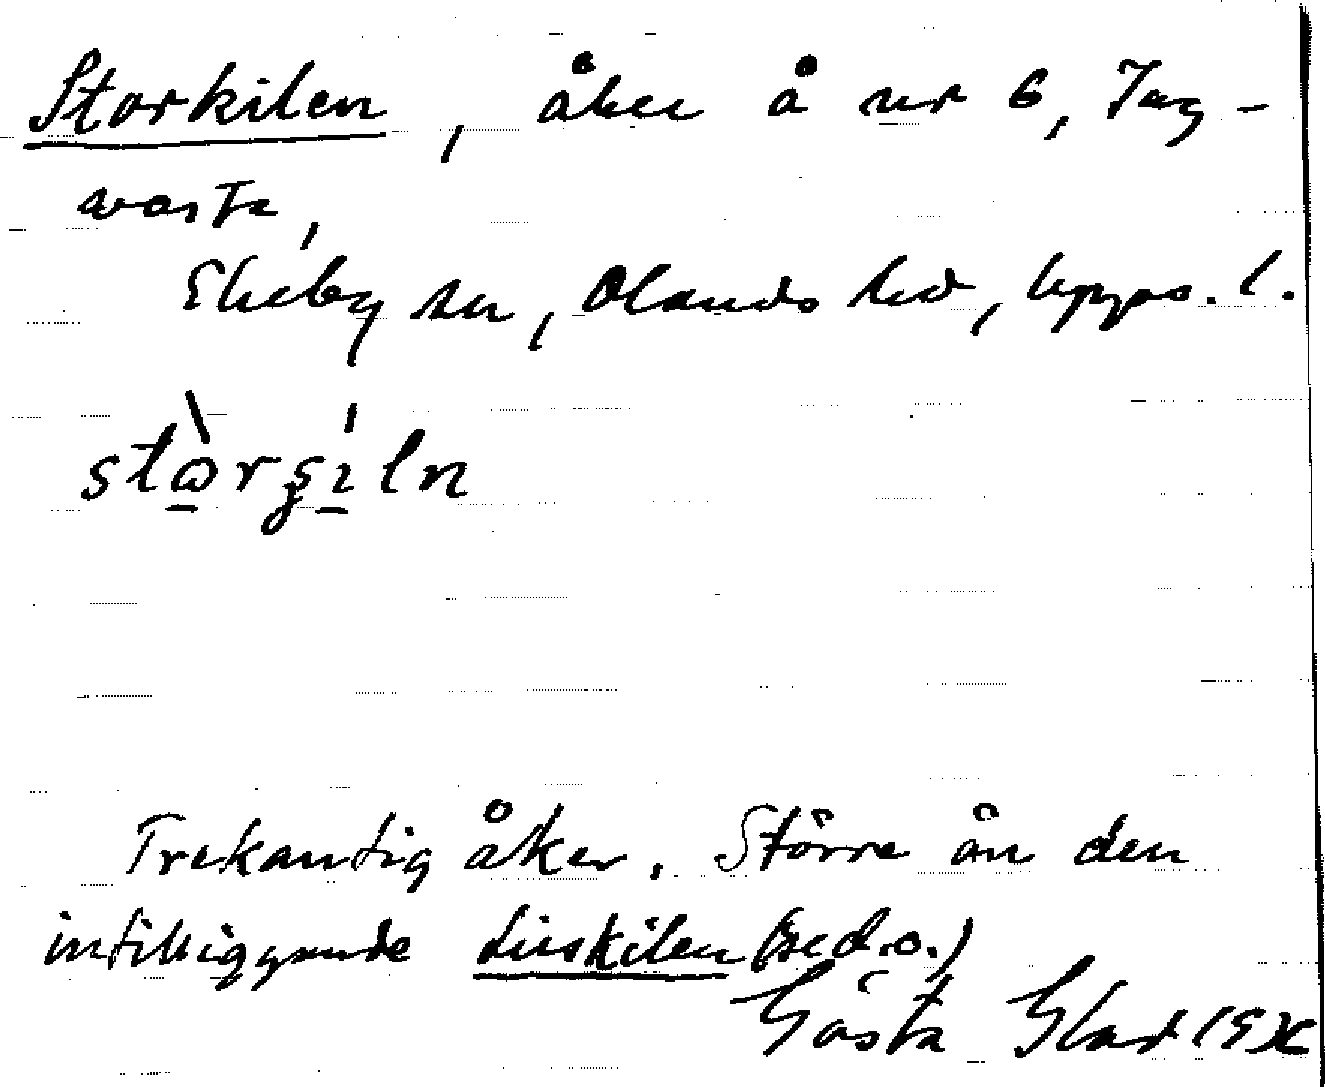 Storkilen, åker å nr 6, Tug-
vasta,
Ekeby sn, Olands hd, Upps. l.
Trekantig åker. Större än den
intilliggande Luskilen (se d. o.)
Gösta